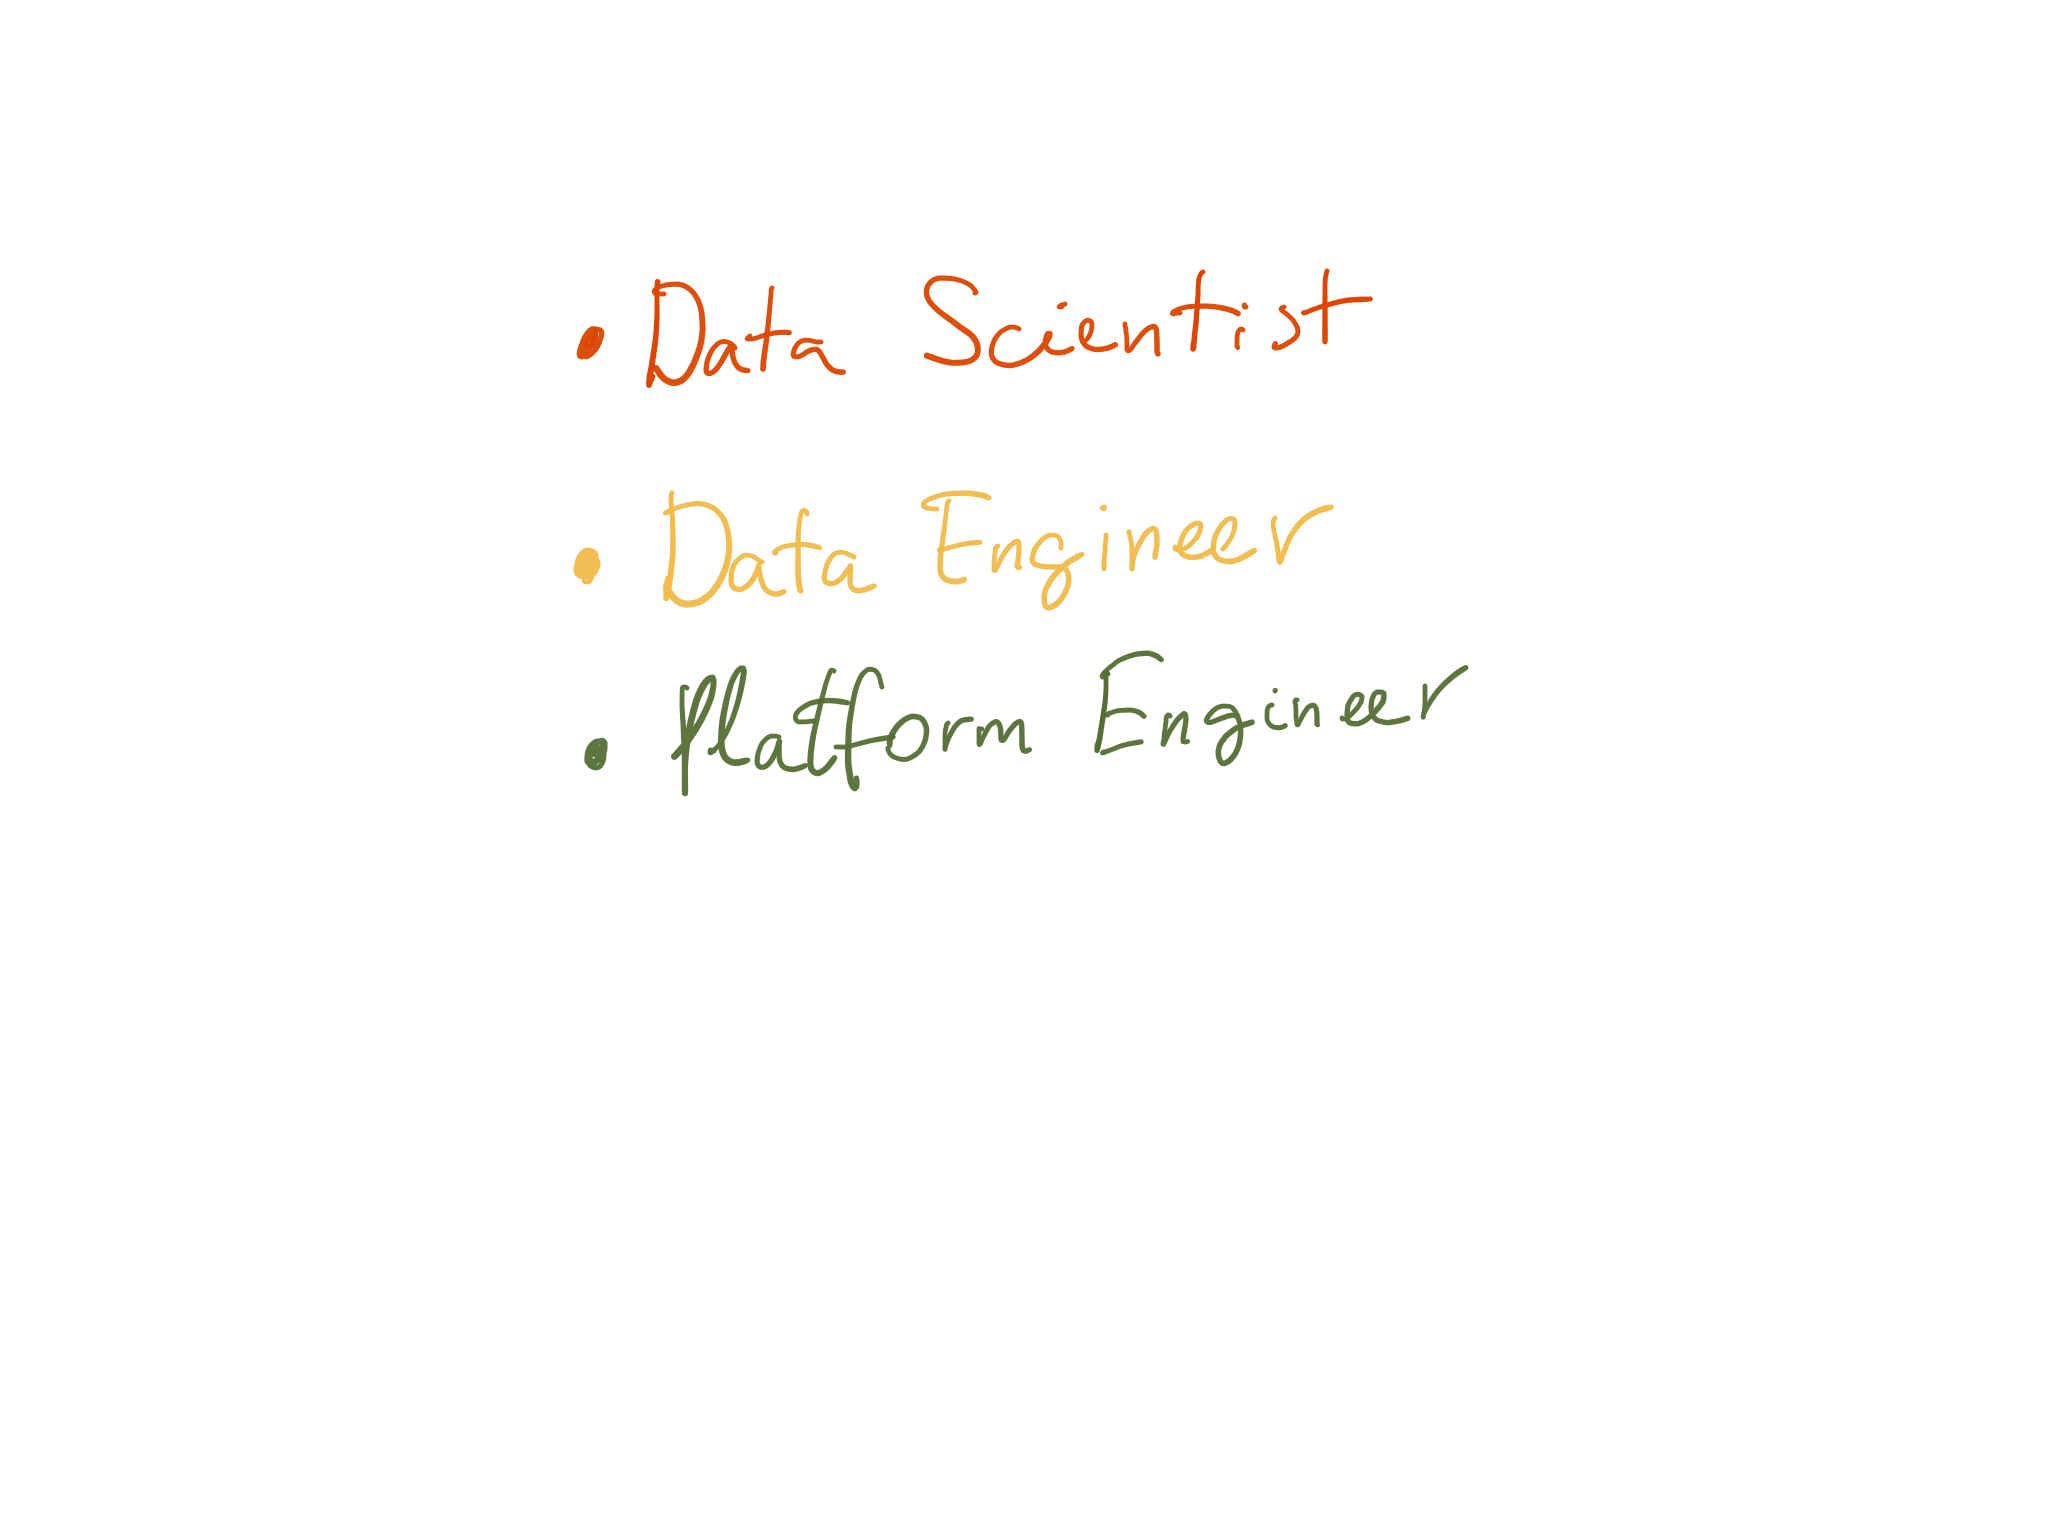 • Data Scientist
• Data Engineer
• Platform Engineer